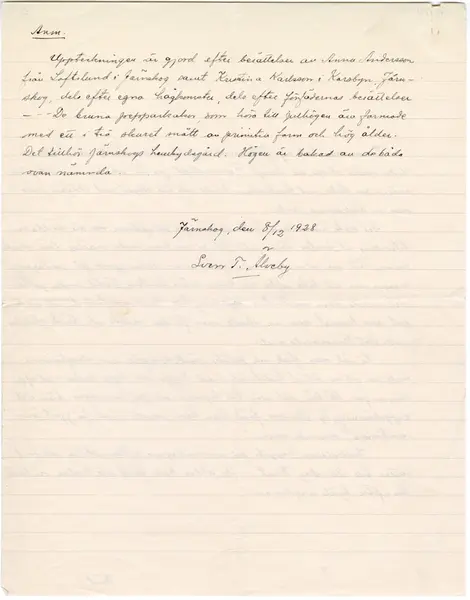 Anm.
Uppteckningen är gjord efter berättelser av Anna Andersson
från Loftslund i Järnskog samt Kristina Karlsson i Korsbyn, Järn-
skog, dels efter egna hågkomster, dels efter förfädernas berättelser
- - - De bruna pepparkakor, som höra till julhögen äro formade
med ett i trä skuret mått av primitiv form och hög ålder.
Det tillhör Järnskogs hembydsgård. Högen är bakad av de båda
ovan nämnda.
Järnskog, den 8/12 1928
Sven T. Alveby